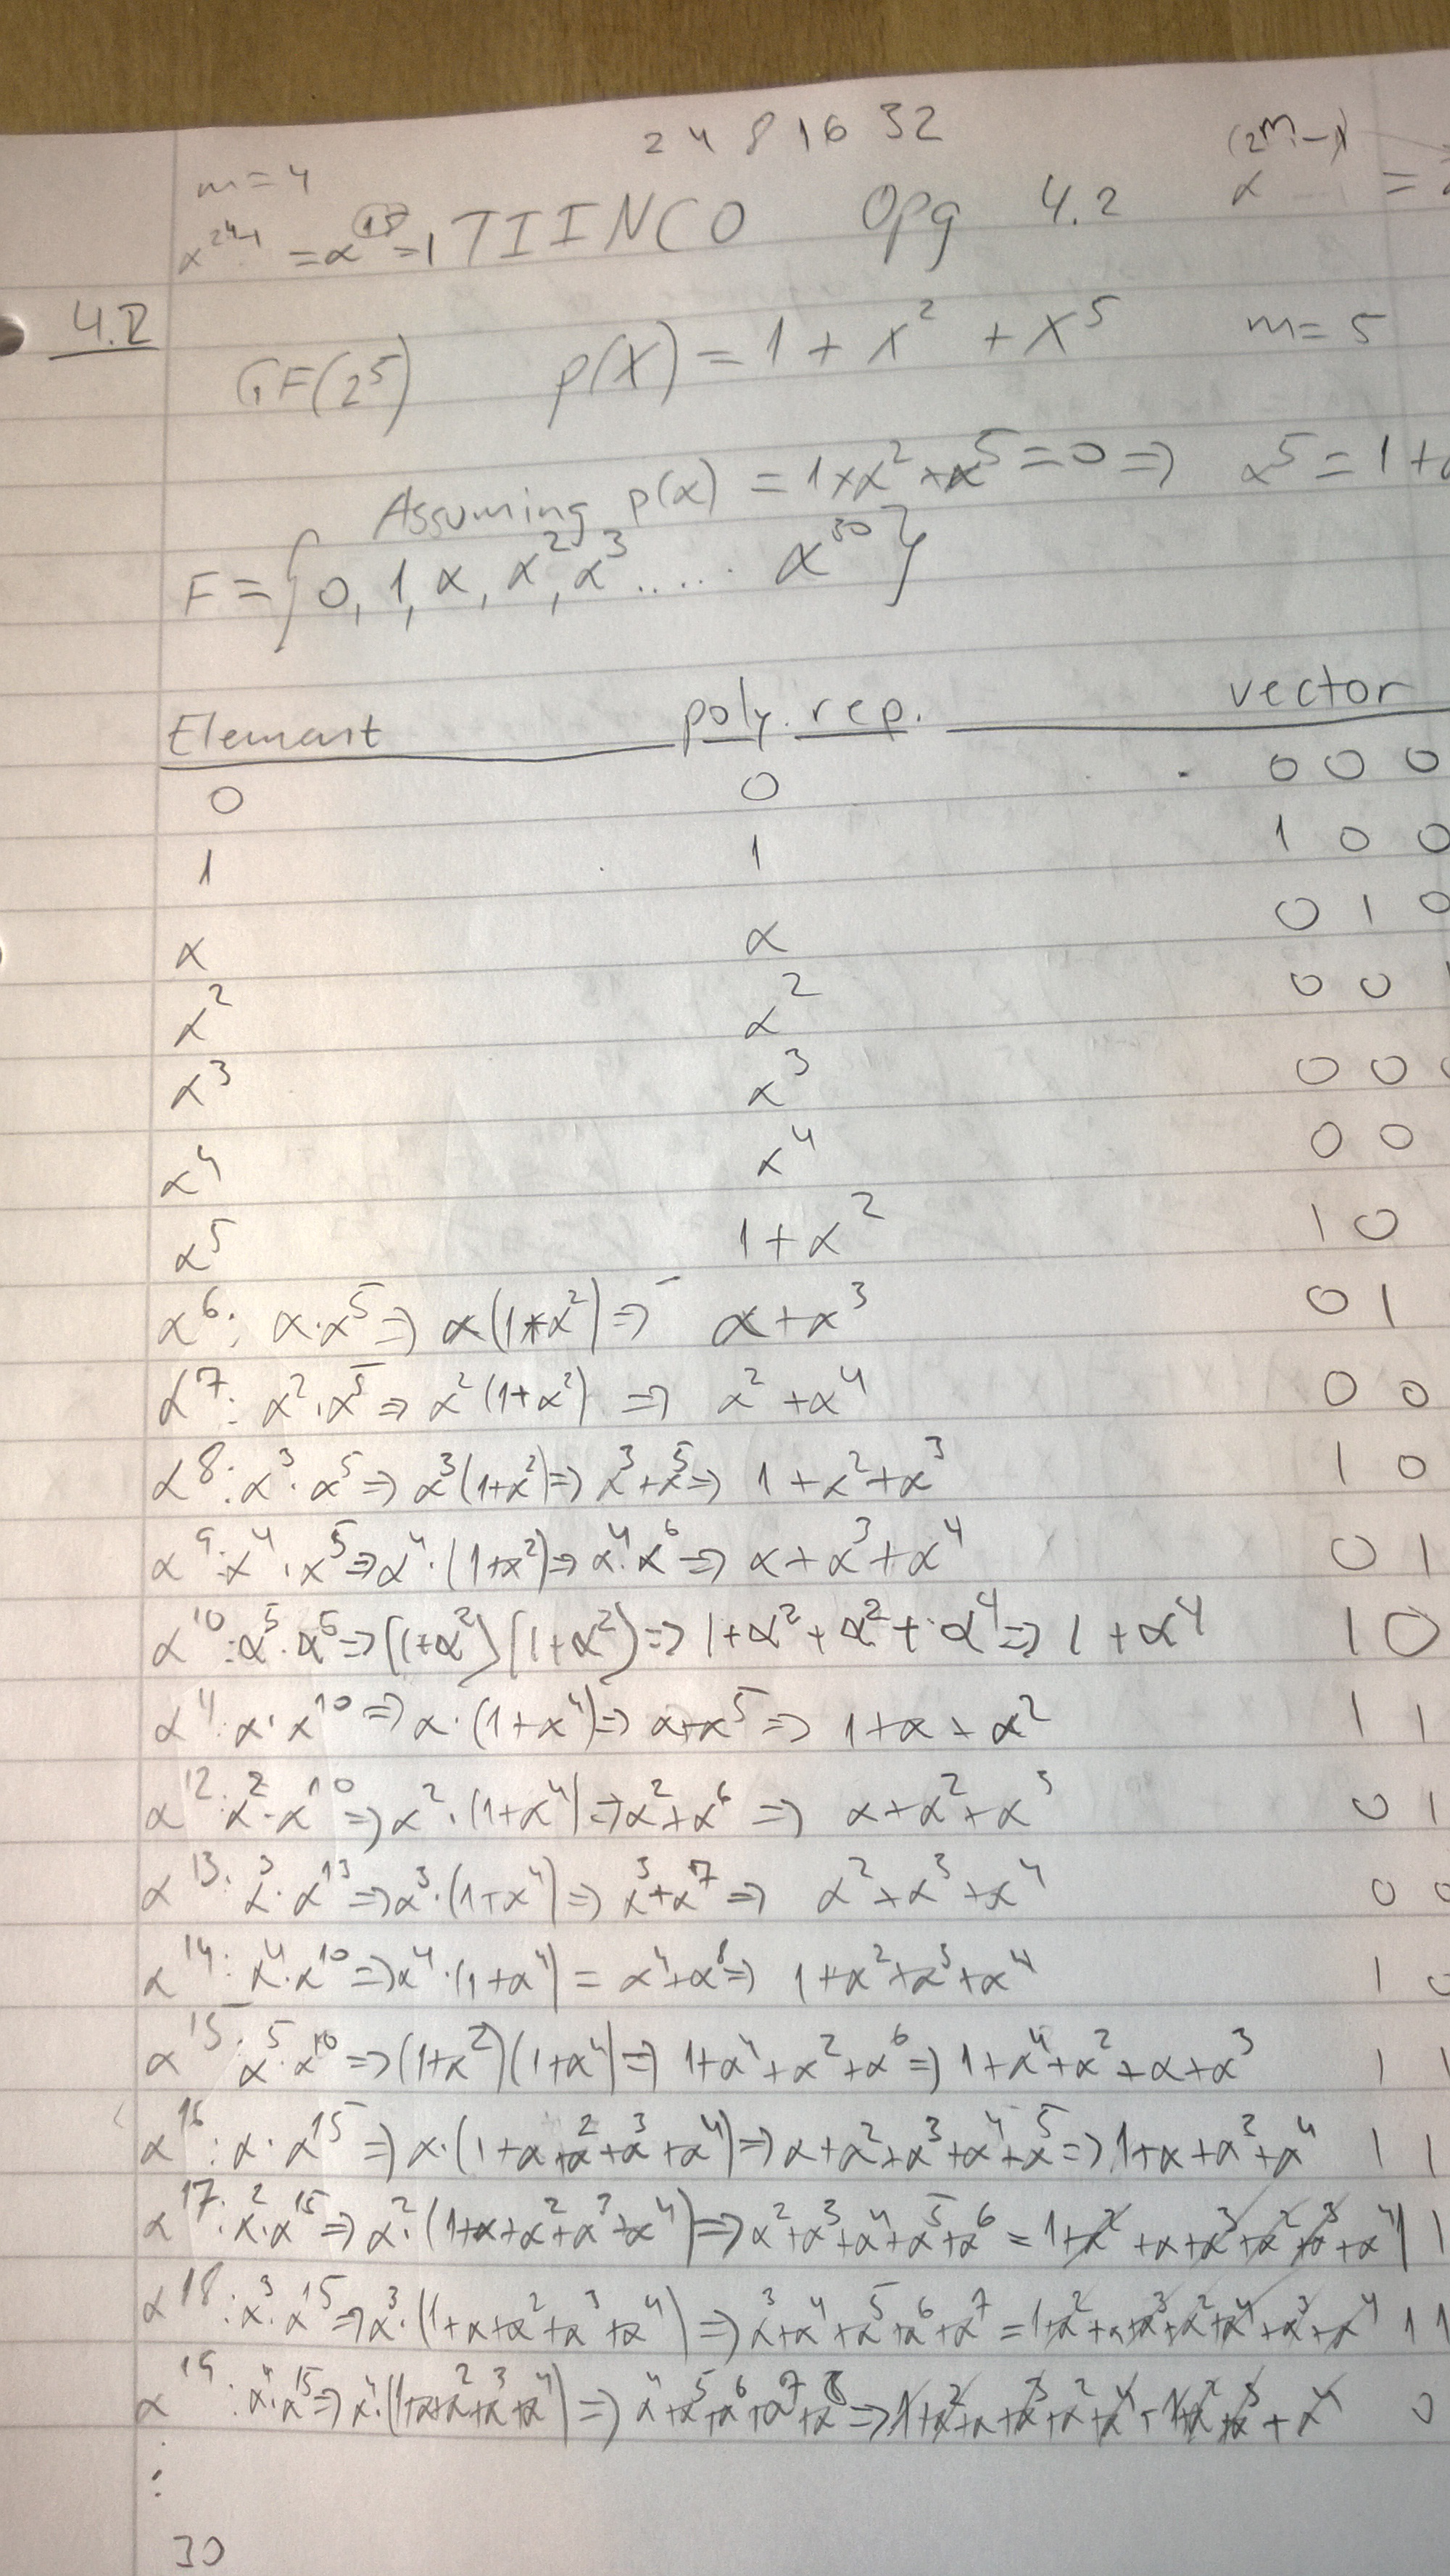 2 4 8 16 32
m=4
α^(2^4-1) = α^15 = 1 TIINCO Opg 4.2 α^(2^m-1) =
4.2
GF(2^5) p(X) = 1 + X^2 + X^5 m = 5
Assuming p(α) = 1+α^2+α^5 = 0 => α^5 = 1+
F = {0, 1, α, α^2, α^3 ..... α^30}
Element poly. rep. vector
0 0 0 0 0
1 1 1 0 0
α α 0 1 0
α^2 α^2 0 0 1
α^3 α^3 0 0
α^4 α^4 0 0
α^5 1+α^2 1 0
α^6: α·α^5 => α(1+α^2) => α+α^3 0 1
α^7: α^2·α^5 => α^2(1+α^2) => α^2+α^4 0 0
α^8: α^3·α^5 => α^3(1+α^2) => α^3+α^5 => 1+α^2+α^3 1 0
α^9: α^4·α^5 => α^4·(1+α^2) => α^4·α^6 => α+α^3+α^4 0 1
α^10: α^5·α^5 => (1+α^2)(1+α^2) => 1+α^2+α^2+α^4 => 1+α^4 1 0
α^11: α·α^10 => α·(1+α^4) => α+α^5 => 1+α+α^2 1 1
α^12: α^2·α^10 => α^2·(1+α^4) => α^2+α^6 => α+α^2+α^3 0 1
α^13: α^3·α^13 => α^3·(1+α^4) => α^3+α^7 => α^2+α^3+α^4 0 0
α^14: α^4·α^10 => α^4·(1+α^4) = α^4+α^8 => 1+α^2+α^3+α^4 1 0
α^15: α^5·α^10 => (1+α^2)(1+α^4) => 1+α^4+α^2+α^6 => 1+α^4+α^2+α+α^3 1 1
α^16: α·α^15 => α·(1+α+α^2+α^3+α^4) => α+α^2+α^3+α^4+α^5 => 1+α+α^3+α^4 1 1
α^17: α^2·α^15 => α^2·(1+α+α^2+α^3+α^4) => α^2+α^3+α^4+α^5+α^6 = 1+α^2+α+α^3+α^2+α^3+α^4 1 1
α^18: α^3·α^15 => α^3·(1+α+α^2+α^3+α^4) => α^3+α^4+α^5+α^6+α^7 = 1+α^2+α+α^3+α^2+α^4+α^3+α^4 1 1
α^19: α^4·α^15 => α^4·(1+α+α^2+α^3+α^4) => α^4+α^5+α^6+α^7+α^8 => 1+α^2+α+α^3+α^2+α^4+1+α^2+α^3+α^4 0
:
30